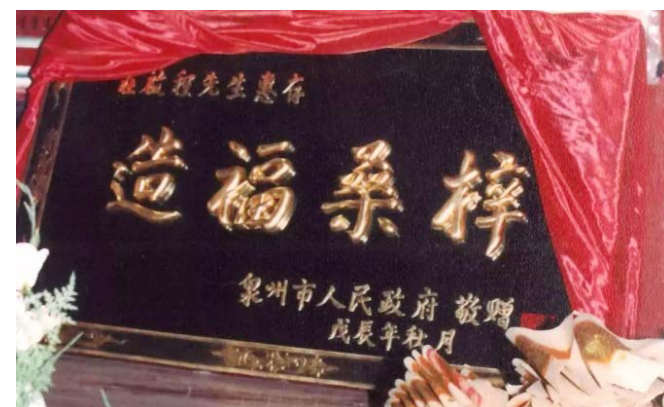 先生惠存
造福桑梓
泉州市人民政府 敬赠
戊辰年秋月